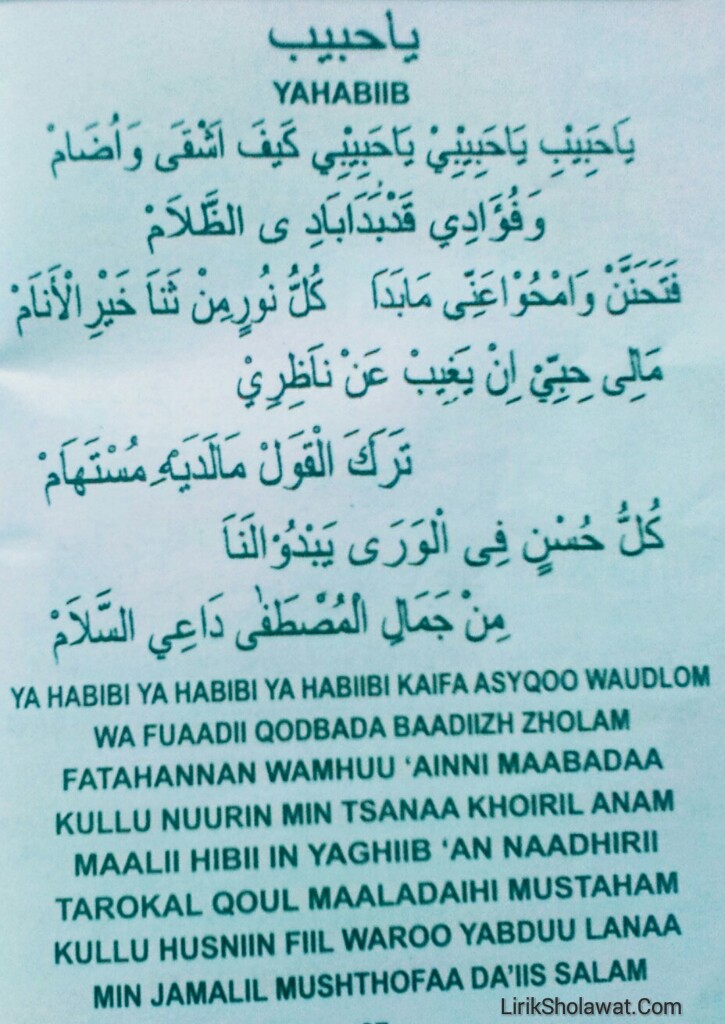 ياحبيب
YAHABIIB
يَاحَبِيْبِ يَاحَبِيْبِيْ يَاحَبِيْبِي كَيفَ اَشْقَى وَاُضَامْ
وَفُؤَادِي قَدْبَدَابَادِ ى الظَّلَامْ
فَتَحَنَّنْ وَامْحُوْاعَنِّى مَابَدَا كُلُّ نُورٍمِنْ ثَنَا خَيْرِ الْأَنَامْ
مَالِى حِبِّيْ اِنْ يَغِيبْ عَنْ نَاظِرِيْ
تَرَكَ الْقَوَلْ مَالَدَيْهِ مُسْتَهَامْ
كُلُّ حُسْنٍ فِى الْوَرَى يَبْدُوْالَنَا
مِنْ جَمَالِ الْمُصْطَفٰى دَاعِي السَّلَامْ
YA HABIBI YA HABIBI YA HABIIBI KAIFA ASYQOO WAUDLOM
WA FUAADII QODBADA BAADIIZH ZHOLAM
FATAHANNAN WAMHUU ‘AINNI MAABADAA
KULLU NUURIN MIN TSANAA KHOIRIL ANAM
MAALII HIBII IN YAGHIIB ‘AN NAADHIRII
TAROKAL QOUL MAALADAIHI MUSTAHAM
KULLU HUSNIIN FIIL WAROO YABDUU LANAA
MIN JAMALIL MUSHTHOFAA DA’IIS SALAM
LirikSholawat.Com